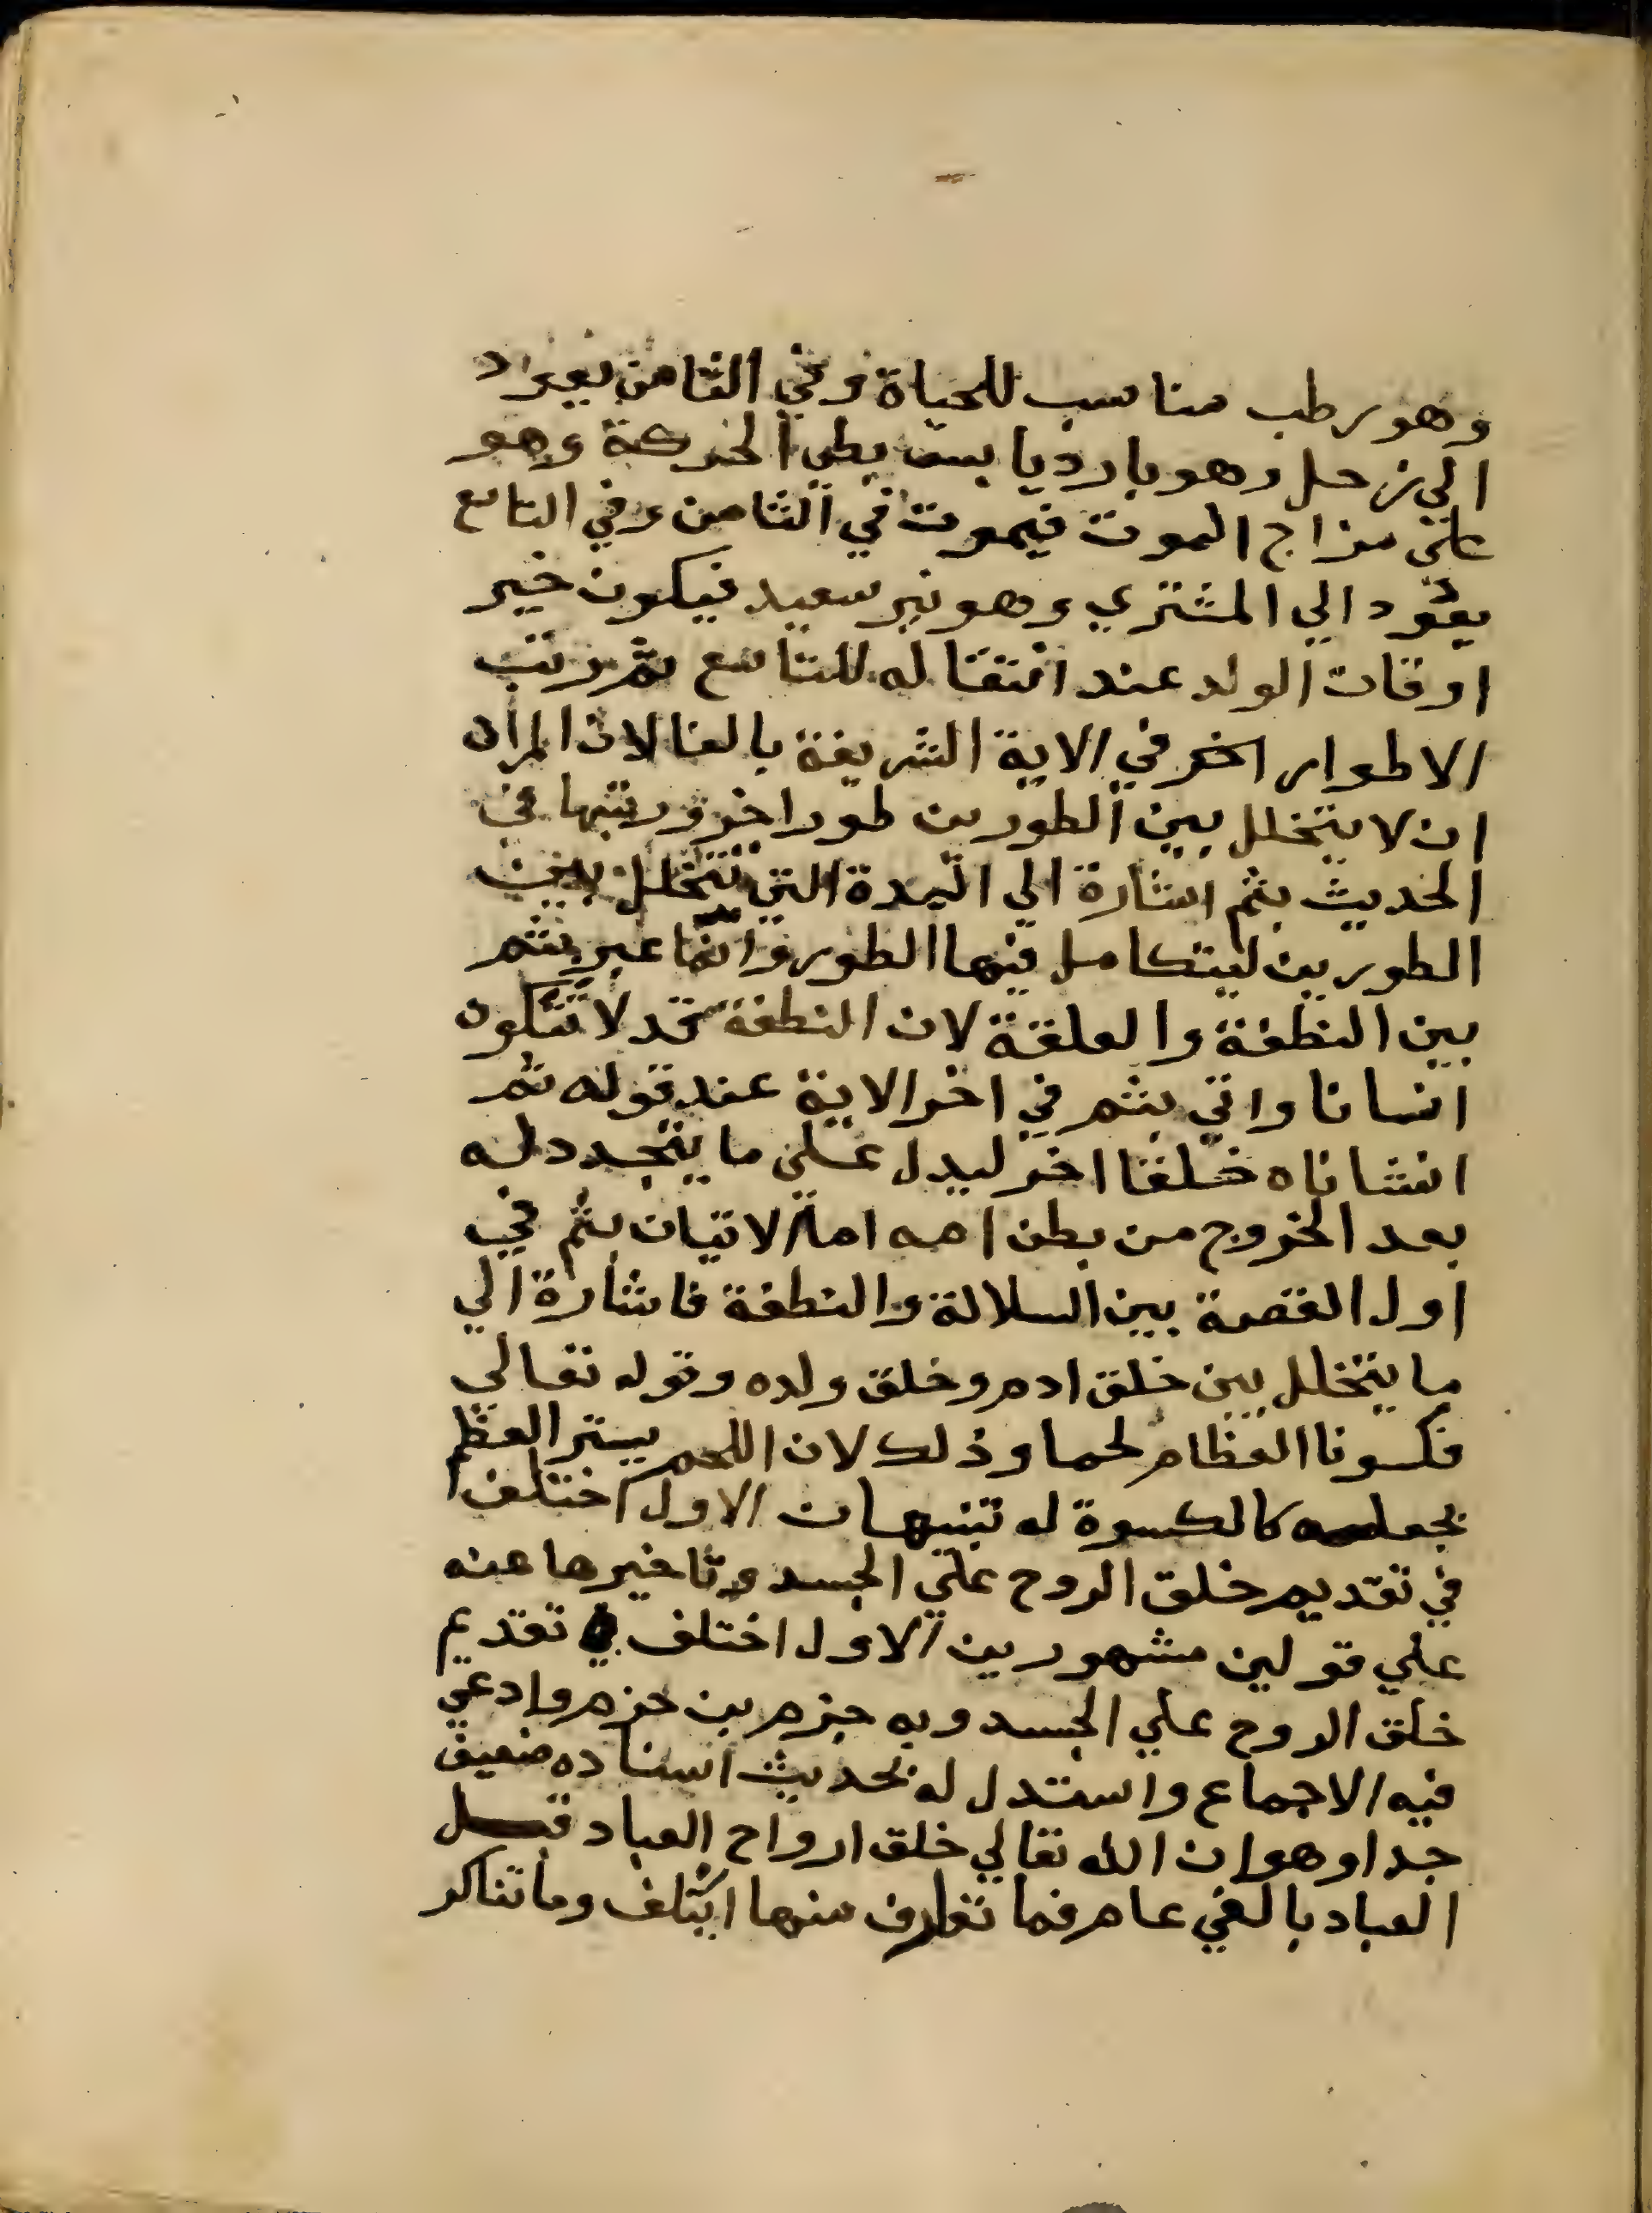 وهو رطب مناسب للحياة وفي الثامن يعود
الي زحل وهو بارد يابس بطي الحركة وهو
علي مزاج الموت فيموت في الثامن وفي التاسع
يعود الي المشتري وهو نير سعيد فيكون خير
اوقات الولد عند انتقاله للتاسع ثم رتب
الاطوار اخر في الاية الشريفة بالفا لان المراد
ان لا يتخلل بين الطورين طورا خر ورتبها في
الحديث بثم اشارة الي المدة التي تتخلل بين
الطورين ليتكامل فيها الطور وانما عبر بثم
بين النطفة والعلقة لان النطفة قد لا تتكون
انسانا واتي بثم في اخر الاية عند قوله ثم
انشاناه خلقا اخر ليدل علي ما يتجدد له
بعد الخروج من بطن امه اما الاتيان بثم في
اول القصة بين السلالة والنطفة فاشارة الي
ما يتخلل بين خلق ادم وخلق ولده وقوله تعالي
فكسونا العظام لحما وذلك لان اللحم يستر العظم
بجعله كالكسوة له تنبيهات الاول اختلف
في تقديم خلق الروح علي الجسد وتاخيرها عنه
علي قولين مشهورين الاول اختلف في تقديم
خلق الروح علي الجسد وبه جزم بن حزم وادعي
فيه الاجماع واستدل له بحديث اسناده ضعيف
جدا وهو ان الله تعالي خلق ارواح العباد قبل
العباد بالفي عام فما تعارف منها ايتلف وما تناكر